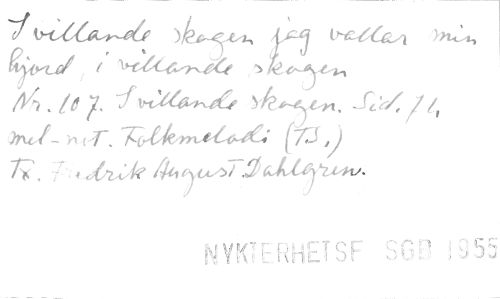 I villande skogen jag vallar min
hjord, i villande skogen
Nr. 107. I villande skogen. Sid. 71,
mel-not. Folkmelodi (TS.)
Tx. Fredrik August Dahlgren.
NYKTERHETSF SGB 1955